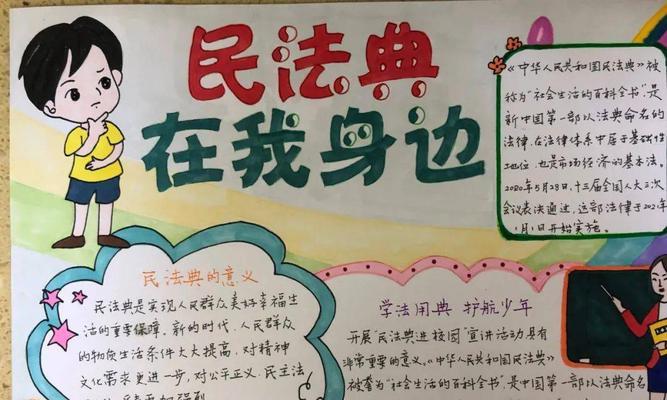 民法典
在我身边
《中华人民共和国民法典》被
称为"社会生活的百科全书",是
新中国第一部以法典命名的
法律,在法律体系中居于基础性
地位,也是市场经济的基本法。
2020年5月28日,十三届全国人大三次
会议表决通过,这部法律于2021年
1月1日开始实施。
民法典的意义
民法典是实现人民群众美好幸福生
活的重要保障。新的时代,人民群众
的物质生活条件大大提高,对精神
文化需求更进一步,对公平正义、民主法
学法用典 护航少年
开展"民法典进校园"宣讲活动具有
非常重要的意义。《中华人民共和国民法典》
被誉为"社会生活的百科全书",是中国第一部以法典命名